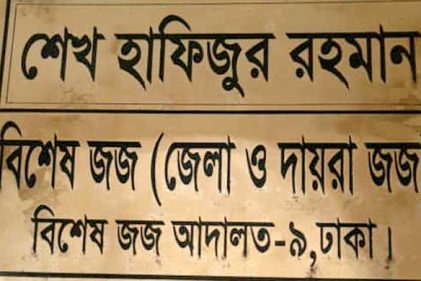 শেখ হাফিজুর রহমান
বিশেষ জজ (জেলা ও দায়রা জজ
বিশেষ জজ আদালত-৯,ঢাকা।